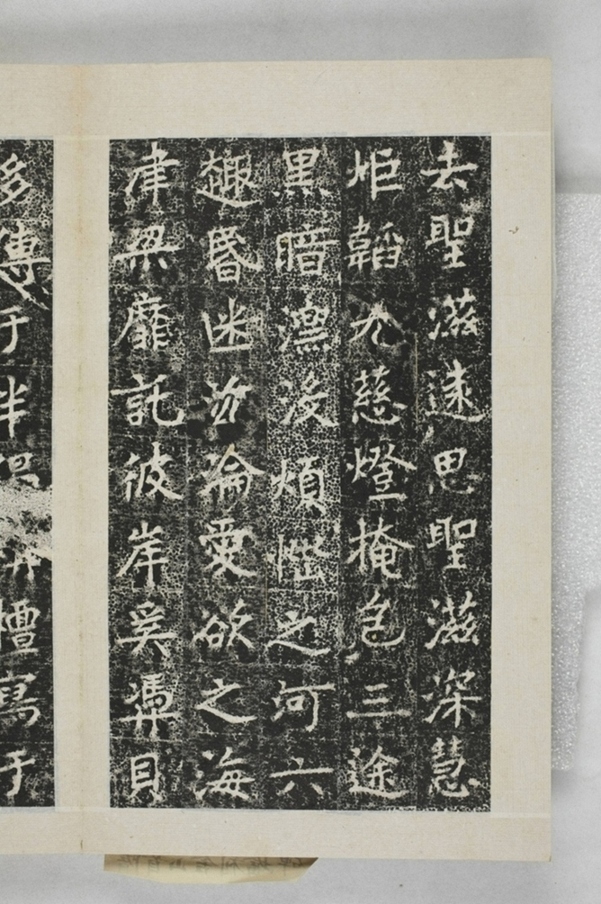 去聖滋遠思聖滋深慧
炬韜光慈燈掩色三途
黑暗漂没煩惱之河六
趣昏迷沉淪愛欲之海
津梁靡託彼岸奚憑貝
多傳于半偈檀寫于